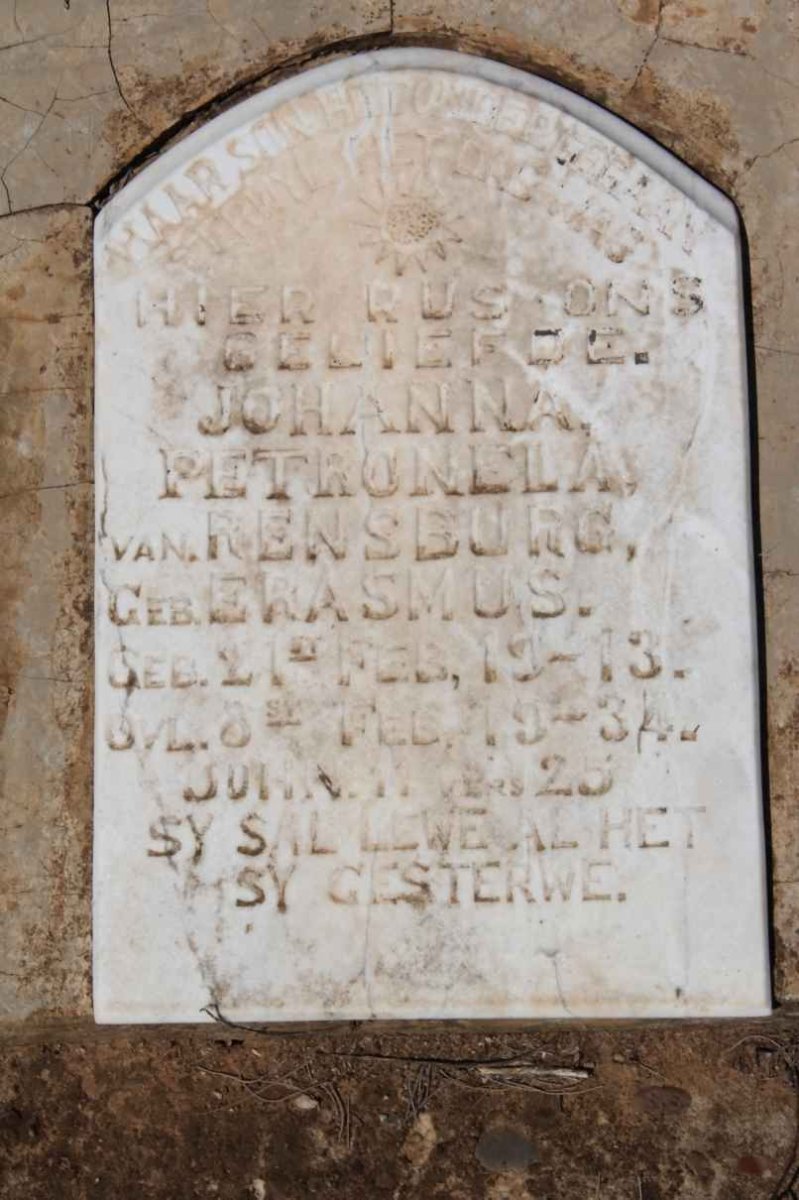 HAAR SON HET ONDERGEGAAN
TERWYL HET DAG WAS
HIER RUS ONS
GELIEFDE.
JOHANNA.
PETRONELA,
VAN. RENSBURG,
GEB. ERASMUS.
GEB. 21ST FEB, 19-13.
OVL. 8STE FEB, 19-34.
JOHN. 11 VERS 25
SY SAL LEWE AL HET
SY GESTERWE.